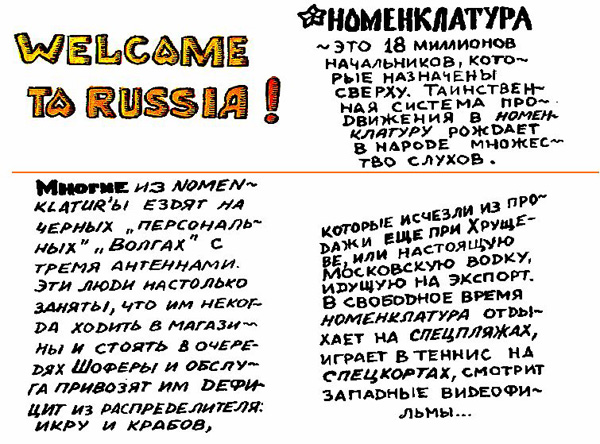 WELCOME
TO RUSSIA!
НОМЕНКЛАТУРА
~ЭТО 18 МИЛЛИОНОВ
НАЧАЛЬНИКОВ, КОТО~
РЫЕ НАЗНАЧЕНЫ
СВЕРХУ. ТАИНСТВЕН~
НАЯ СИСТЕМА ПРО~
ДВИЖЕНИЯ В НОМЕН~
КЛАТУРУ РОЖДАЕТ
В НАРОДЕ МНОЖЕС~
ТВО СЛУХОВ.
МНОГИЕ ИЗ NОМЕN~
KLATUR'Ы ЕЗДЯТ НА
ЧЕРНЫХ „ПЕРСОНАЛЬ~
НЫХ" „ВОЛГАХ" С
ТРЕМЯ АНТЕННАМИ.
ЭТИ ЛЮДИ НАСТОЛЬКО
ЗАНЯТЫ, ЧТО ИМ НЕКОГ~
ДА ХОДИТЬ В МАГАЗИ~
НЫ И СТОЯТЬ В ОЧЕРЕ~
ДЯХ ШОФЕРЫ И ОБСЛУ~
ГА ПРИВОЗЯТ ИМ ДЕФИ~
ЦИТ ИЗ РАСПРЕДЕЛИТЕЛЯ:
ИКРУ И КРАБОВ,
КОТОРЫЕ ИСЧЕЗЛИ ИЗ ПРО~
ДАЖИ ЕЩЕ ПРИ ХРУЩЕ~
ВЕ, ИЛИ НАСТОЯЩУЮ
МОСКОВСКУЮ ВОДКУ,
ИДУЩУЮ НА ЭКСПОРТ.
В СВОБОДНОЕ ВРЕМЯ
НОМЕНКЛАТУРА ОТДЫ~
ХАЕТ НА СПЕЦПЛЯЖАХ,
ИГРАЕТ В ТЕННИС НА
СПЕЦКОРТАХ, СМОТРИТ
ЗАПАДНЫЕ ВИДЕОФИ~
ЛЬМЫ...